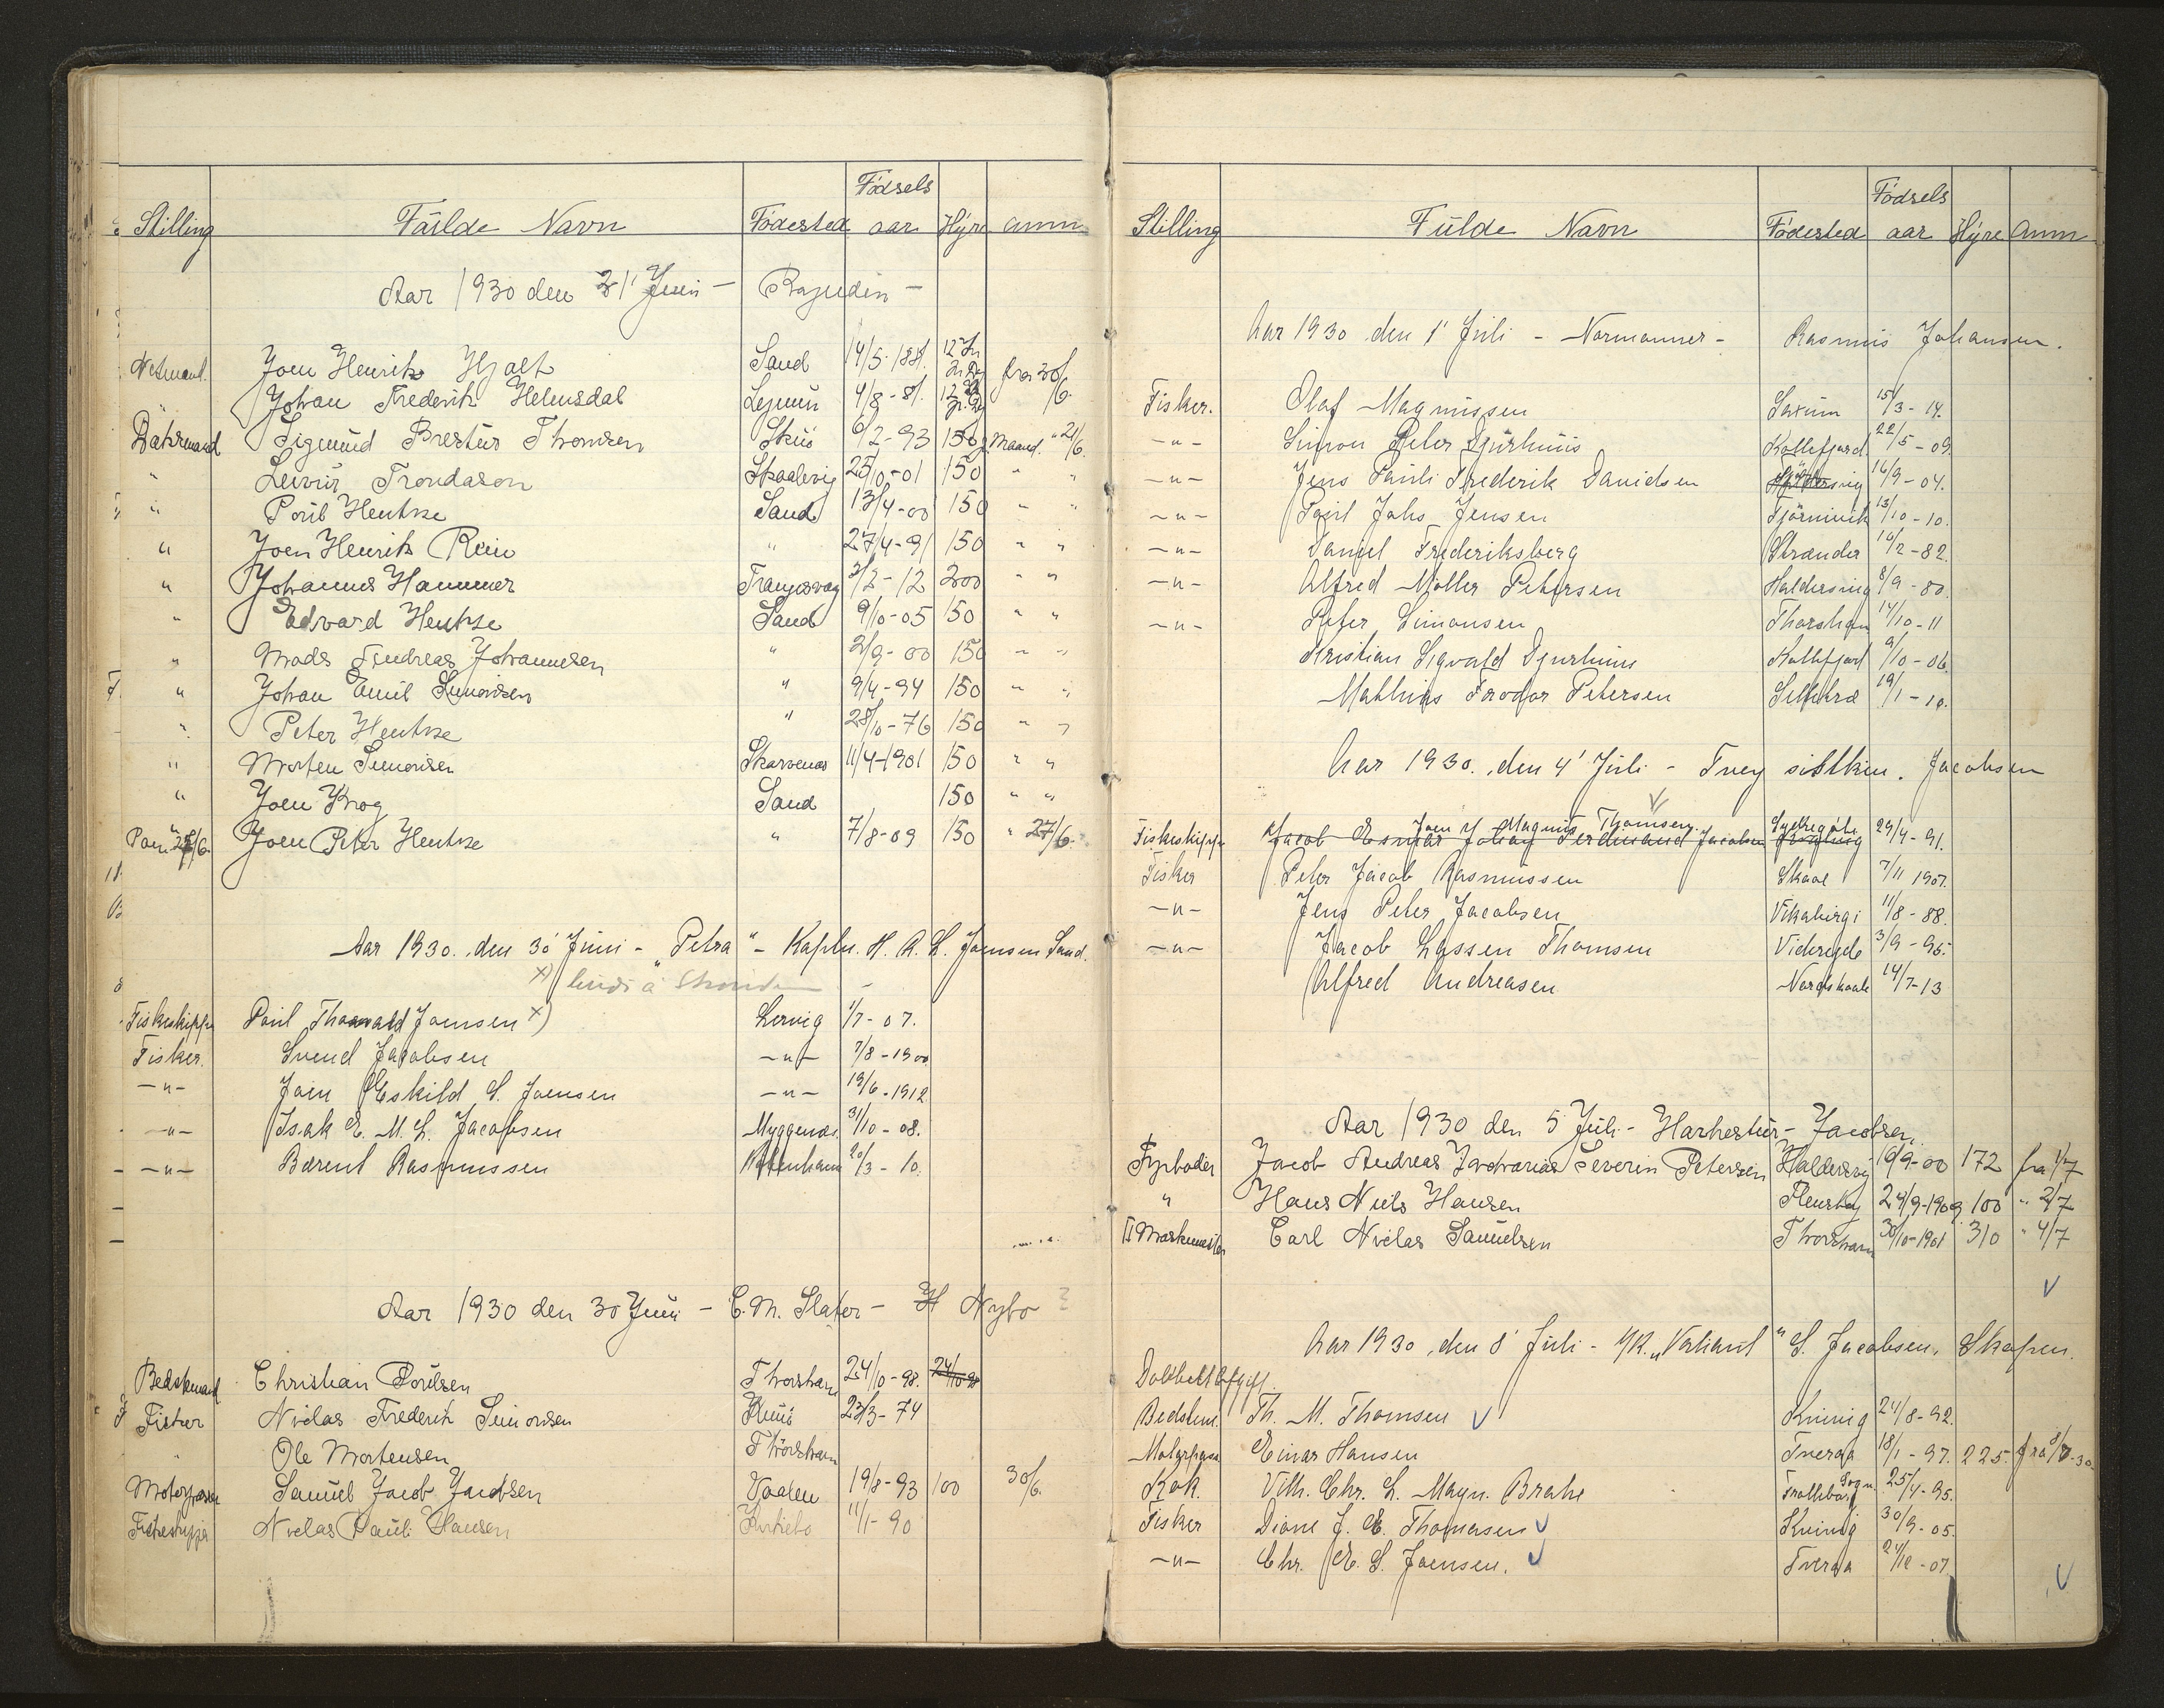 Fødsels
Stilling Fülde Navn Fødested aar Hyre Anm
Aar 1930 den 21' Juni -
Joen Henrik Hjalt Sand 14/5-
Johan Frederik Helmsdal 4/8-81. fra 20/6
Sigmund Brestur Thomsen 6/2-93 150 Maand. " 21/6.
" Trondason Skaalevig 25/10-01 150 " "
" Poül Hentze Sand 13/4-00 150 " "
" Joen Henrik " 27/4-91 150 " "
" Johannes Hammer 2/2-12 200 " "
" Edvard Hentze Sand 9/10-05 150 " "
" Mads Andreas Johannesen " 2/9-00 150 " "
" Johan Emil Simonsen " 9/4-94 150 " "
" Peter Hentze " 28/10-76 150 " "
" Morten Simonsen Skarvenas 11/4-1901 150 " "
" Joen Krog Sand 150 " "
Joen Peter Hentze " 7/8-09 150 " 27/6.
Aar 1930. den 30' Jüni - "Petra" - Kaptn. H. A. L. Joensen Sand.
x)
Fiskeskippr Poül Thorvald Joensen x) Lervig 1/7-07.
Fisker. Svend Jacobsen -"- 7/8-1900
-"- Joen Eskild S. Joensen -"- 19/6-1912
-"- Isak E. M. L. Jacobsen Myggenæs 31/10-08.
-"- Bærent Rasmussen 20/3-10.
Aar 1930 den 30 Juni - C. M. Slater - H Nybo
Bedstemand Christian Poülsen Thorshavn 24/10-98. 24/10-98
Fisker Niclas Frederik Simonsen 23/3-74
" Ole Mortensen Thorshavn
Motorpasser Samuel Jacob Jacobsen Vaagen 19/8-93 100 30/6.
Fiskeskipper Niclas Pauli Hansen 11/1-90
Fødsels
Stilling Fülde Navn Fødested aar Hyre Anm
Aar 1930 den 1' Jüli - Normanner - Rasmüs Johansen.
Fisker. Olaf Magnüssen Saxün 15/3-14.
-"- Simon Peter Djürhüüs Kollefjord. 22/5-09.
-"- Jens Paüli Frederik Davidsen 16/9-04.
-"- Poül Johs Jensen Tjörnüvik 13/10-10.
-"- Daniel Frederiksberg Strander 10/2-82.
-"- Alfred Möller Petersen Haldersvig 8/9-80.
-"- Peter Simonsen Thorshavn 14/10-11
Kristian Sigvald Djurhüus Kollefjord 9/10-06.
Mathias Frodar Petersen Selletræ 19/1-10.
Aar 1930. den 4' Jüli - Tvey sistkin. Jacobsen
Joen J Magnüs Thomsen. Sydregöte
Fiskeskippr Jacob Johan Ferdinand Jacobsen 29/4-91.
Fisker Peter Jacob Rasmüssen Skaal 7/11 1907.
-"- Jens Peter Jacobsen Vikabirgi 11/8-88.
-"- Jacob Lassen Thomsen Videreide 3/9-95.
Alfred Andreasen Nordskaale 14/7-13
Aar 1930 den 5 Jüli - Harkestür - Jacobsen.
Fyrbøder Jacob Andreas Zacharias Severin Petersen Haldersvig 19/9-00 172 fra 1/7
" Hans Niels Hansen Flensbog 24/9-1909 100 " 2/7
II Maskmester Carl Niclas Samüelsen Thorshavn 30/10-1901 310 " 4/7
Aar 1930, den 8' Jüli - M/K. "Valiant" S. Jacobsen. Skopen.
Dobbeltbefgift
Bedstem. Th. M. Thomsen Kvivig 24/8-92.
Motorpasser Einar Hansen Tveraa 18/1-97. 225. fra 8/7-30.
Kok. Vilh. Chr. L. Magn. Brahe 25/4-95.
Fisker Diane J. E. Thomasen Kvivig 30/9-05.
-"- Chr. E. S. Joensen. Tveraa 24/10-07.